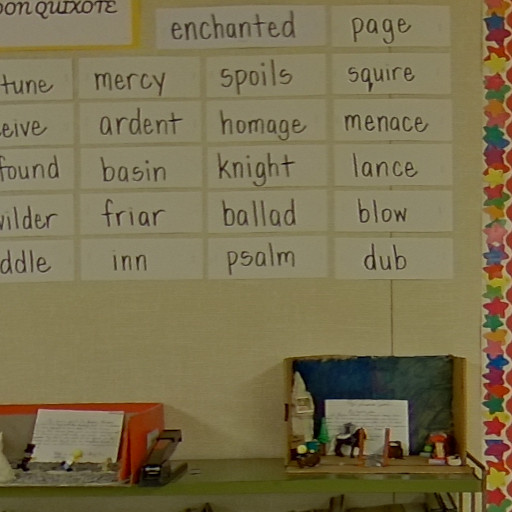 DON QUIXOTE
enchanted page
tune mercy spoils squire
eive ardent homage menace
found basin knight lance
wilder friar ballad blow
ddle inn psalm dub